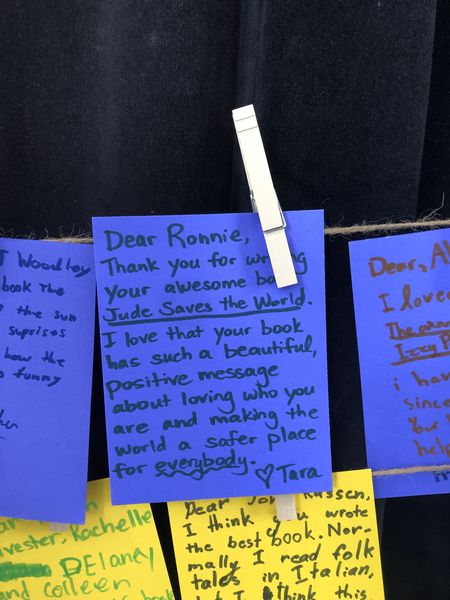 Dear Ronnie,
Thank you for writing
your awesome book
Jude Saves the World.
I love that your book
has such a beautiful,
positive message
about loving who you
are and making the
world a safer place
for everybody.
♡ Tara
T Woodley
book The
the sun
suprises
how the
so funny
Dear, Al
I love
Izzy P
i hav
since
Your b
help
Rochelle
DELANEY
and colleen
book
Dear Jon Klassen,
I think you wrote
the best book. Nor-
mally I read folk
tales in Italian,
but I think this